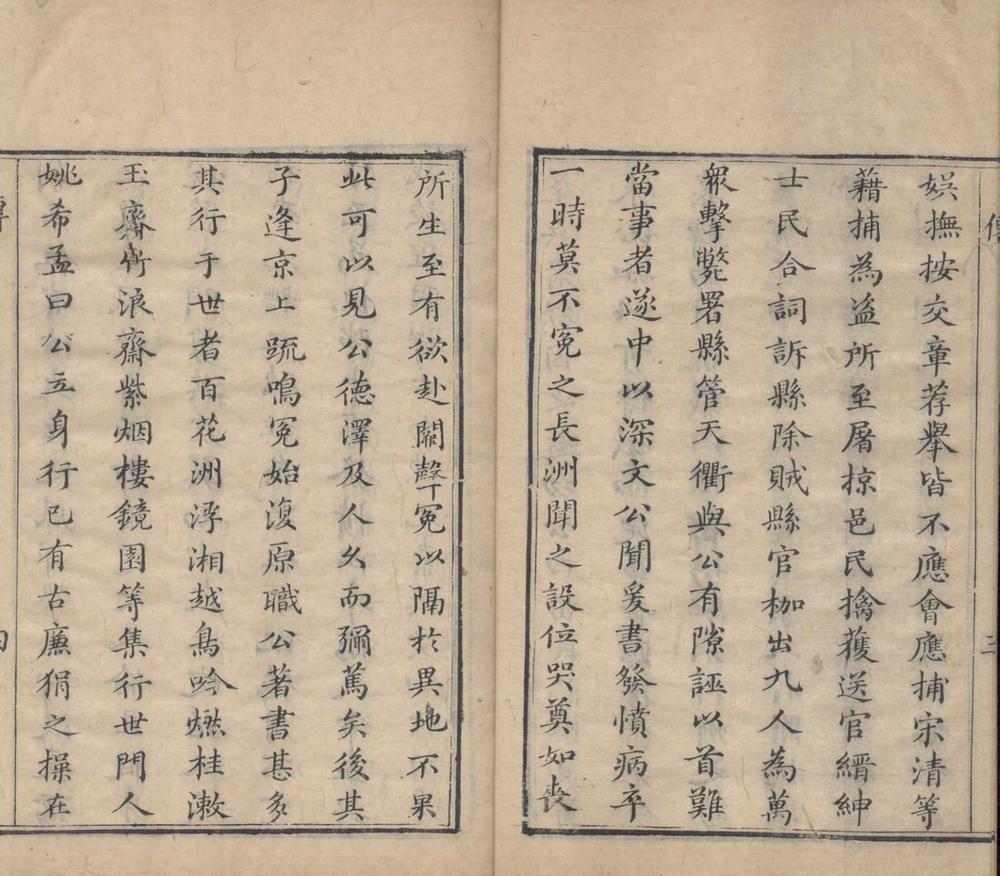 傳
三
娛撫按交章荐舉皆不應會應捕宋清等
藉捕為盗所至屠掠邑民擒獲送官縉紳
士民合詞訴縣除賊縣官枷出九人為萬
衆擊斃署縣管天衢與公有隙誣以首難
當事者遂中以深文公聞爰書發憤病卒
一時莫不寃之長洲聞之設位哭奠如丧
所生至有欲赴闕聲寃以隔於異地不果
此可以見公德澤及人久而彌篤矣後其
子逢京上疏鳴寃始復原職公著書甚多
其行于世者百花洲浮湘越鳥吟燃桂漱
玉齋竹浪齋紫烟樓鏡園等集行世門人
姚希孟曰公立身行己有古廉狷之操在